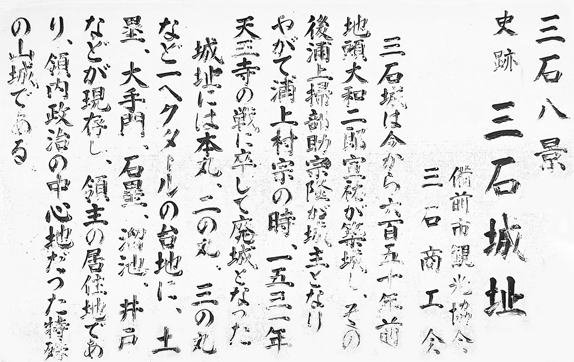 三石八景
史跡 三石城址
備前市観光協会
三石商工会
三石城は今から六百五十年前
地頭大和二郎宣祐が築城し、その
後浦上掃部助宗隆が城主となり
やがて浦上村宗の時、一五三一年
天王寺の戦に卒して廃城となった
城址には本丸、二の丸、三の丸
など一ヘクタールの台地に、土
塁、大手門、石塁、溜池、井戸
などが現存し、領主の居住地であ
り、領内政治の中心地だった特殊
の山城である